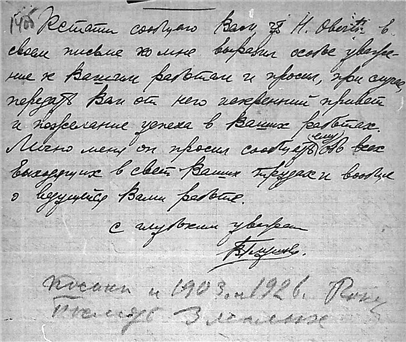 Кстати сообщаю Вам, что H. Oberth в
своем письме ко мне выразил особое уваже-
ние к Вашим работам и просил, при случае,
передать Вам от него искренний привет
и пожелание успеха в Ваших работах.
Лично меня он просил сообщать ему об всех
выходящих в свет Ваших трудах и вообще
о ведущейся Вами работе.
с глубоким уважением
1903 и 1926.